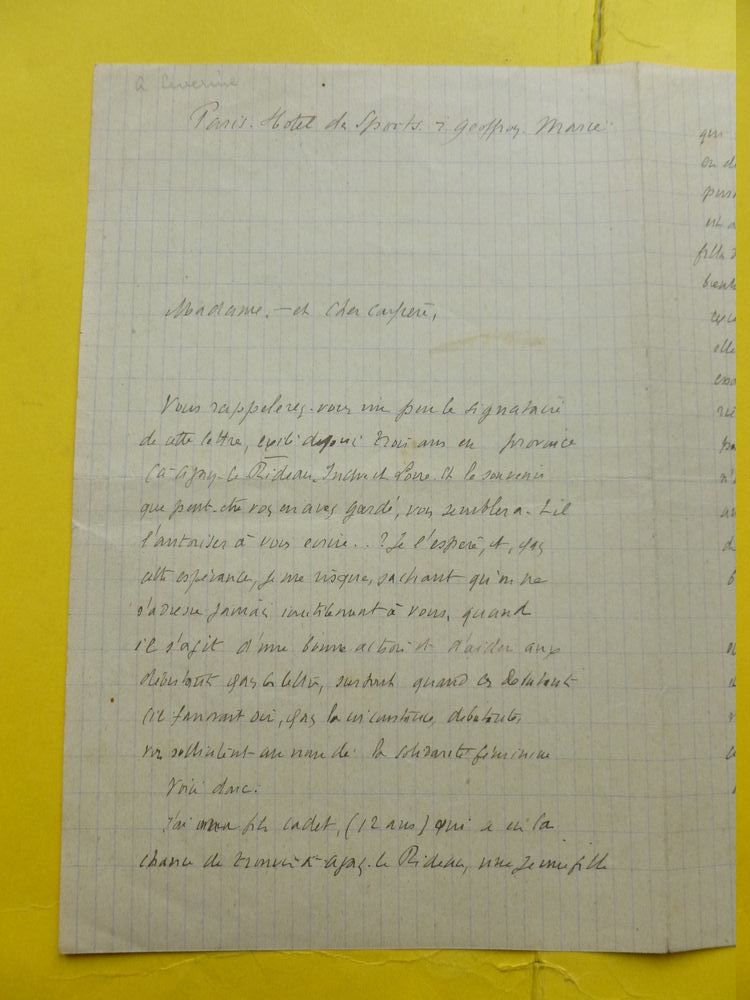 a Severine
Paris. Hotel des Sports. 7 Geoffroy. Marie.
Madame. - et cher confrère,
Vous rappelerez-vous un peu le signataire
de cette lettre, exilé depuis trois ans en province
(à Azay-le Rideau, Indre et Loire. Et le souvenir
que peut-être vous en avez gardé, vous semblera-t-il
l'autoriser à vous écrire...? Je l'espère, et, dans
cette espérance, je me risque, sachant qu'on ne
s'adresse jamais inutilement à vous, quand
il s'agit d'une bonne action et d'aider aux
débutants dans les lettres, surtout quand ces débutants
sont, dans la circonstance, débutantes,
vous sollicitent au nom de la solidarité féminine
Voici donc:
J'ai mon fils cadet, (12 ans) qui a eu la
chance de trouver à Azay-le Rideau, une jeune fille
qui
en d
est a
fille
elle